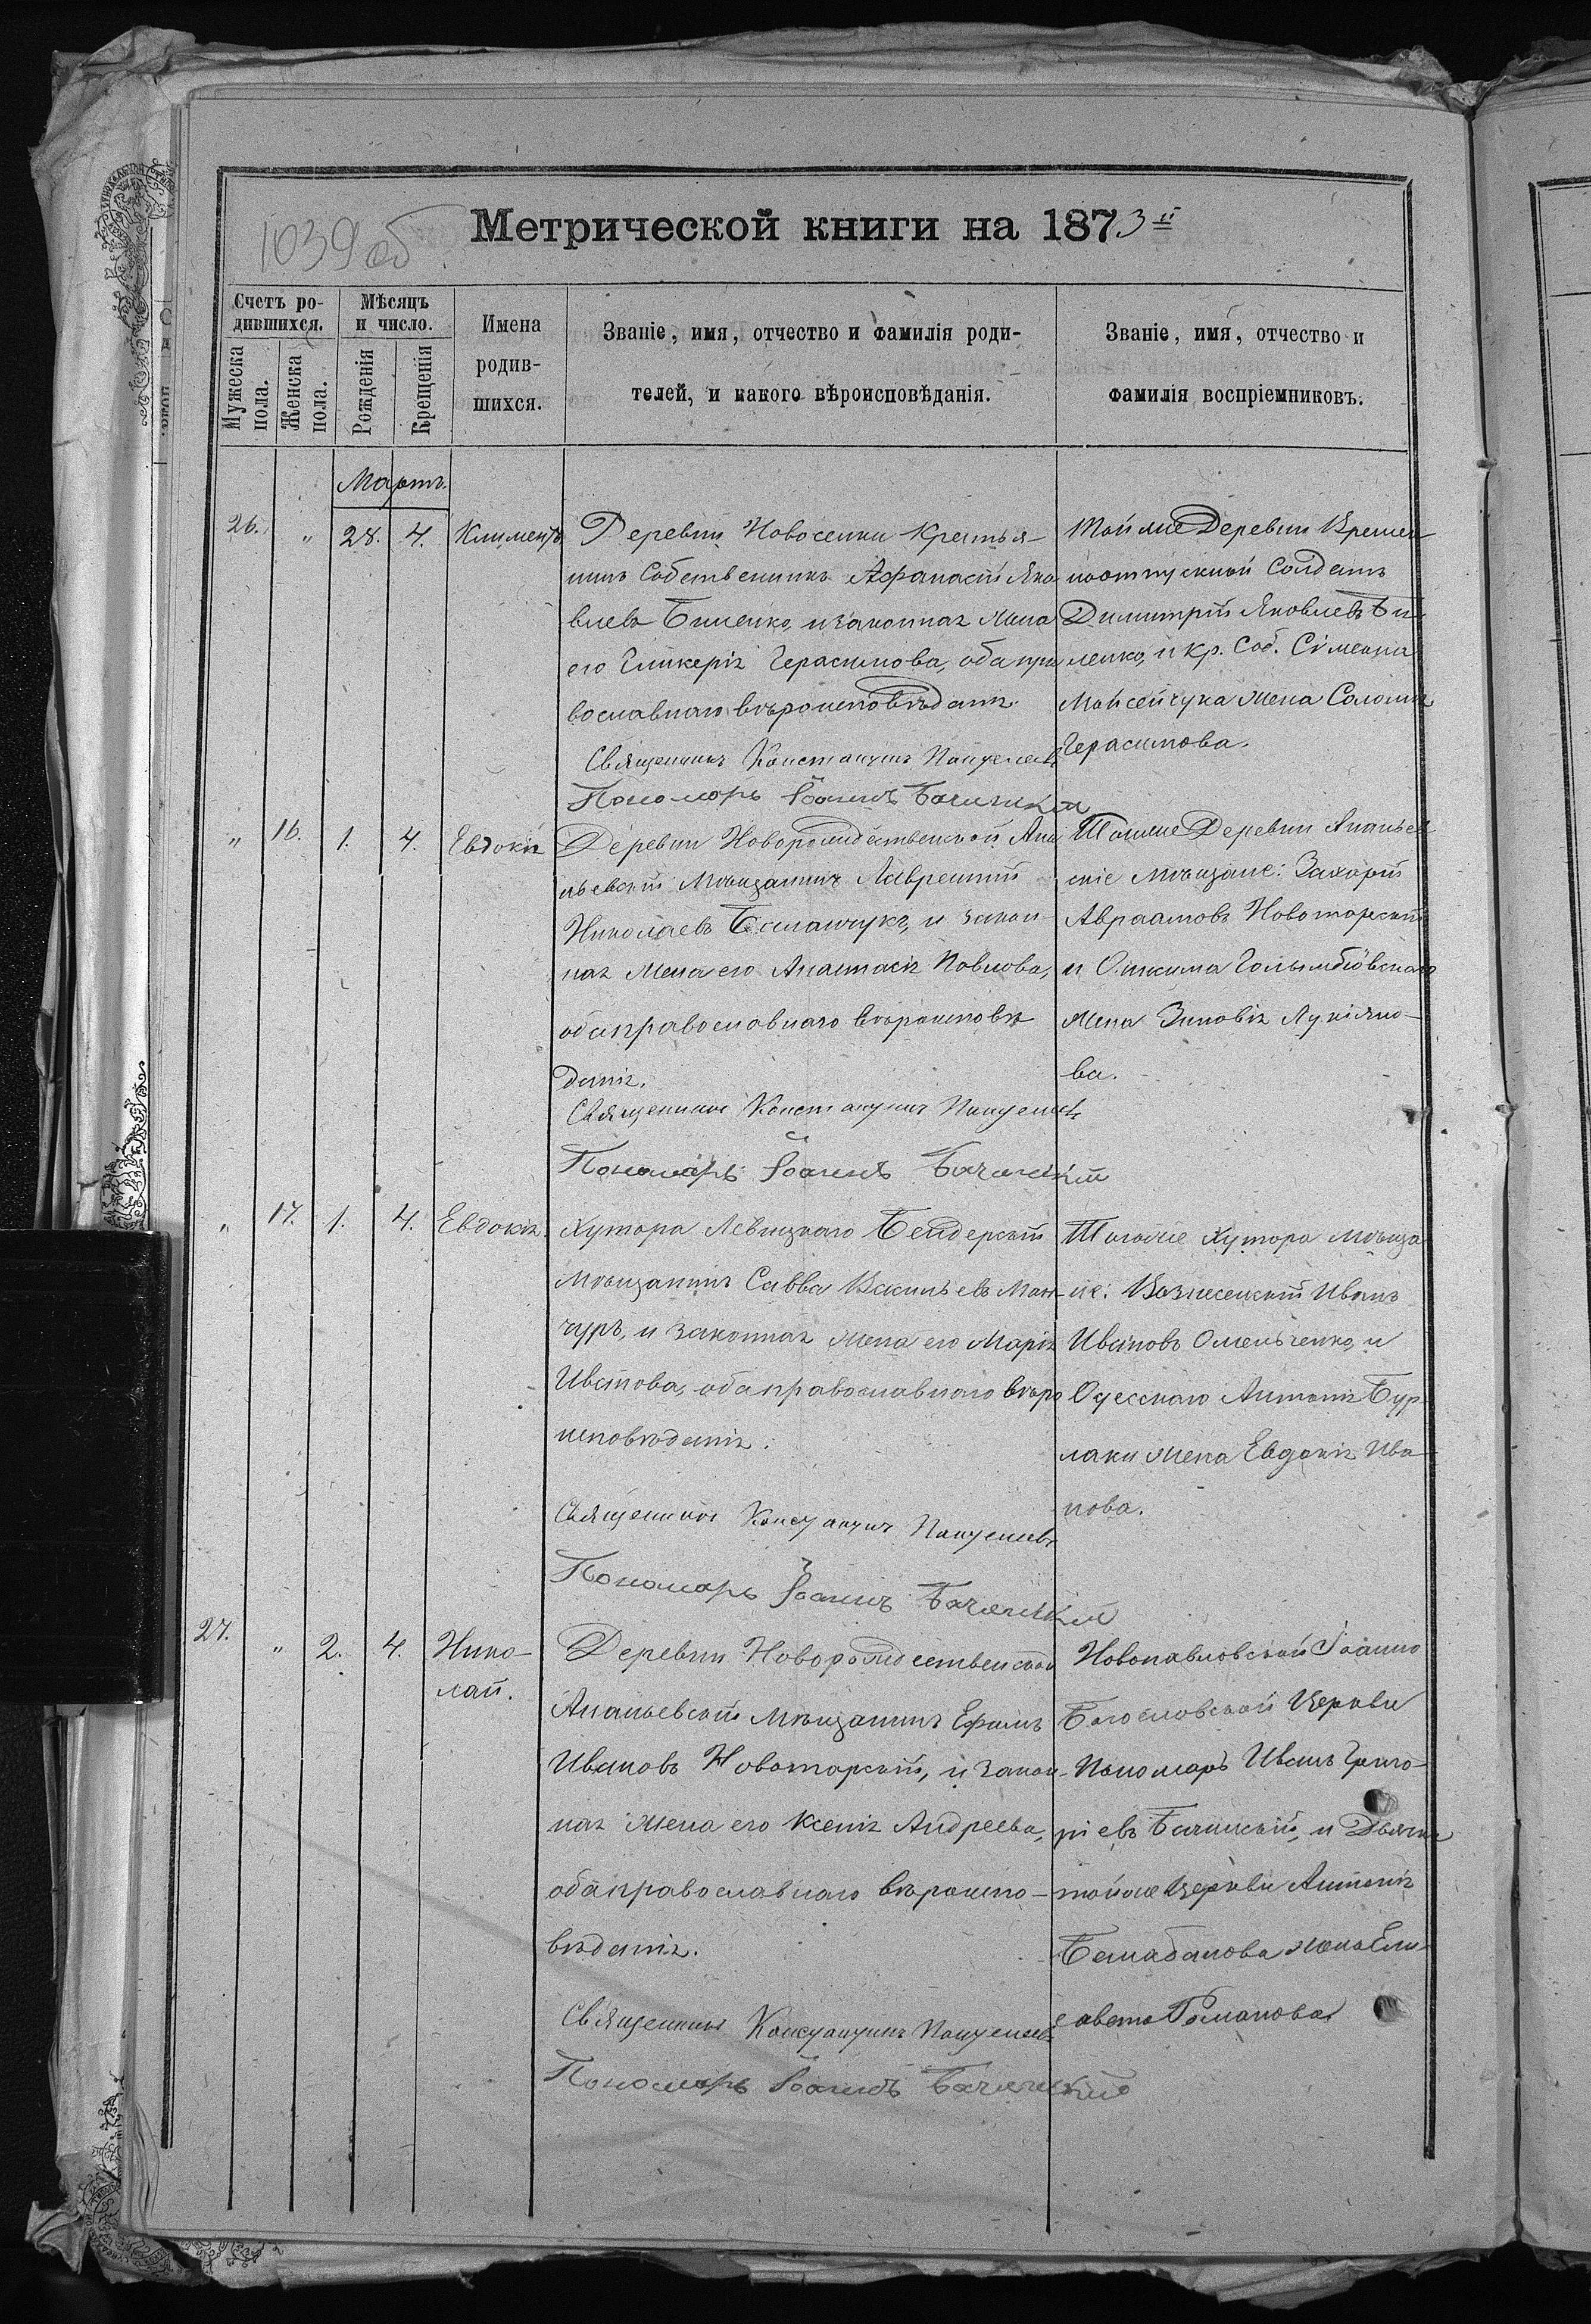 1039 об
Метрической книги на 1873 й
Счетъ ро-
дившихся.
Мужеска пола.
Женска пола.
Мѣсяцъ
и число.
Рожденія
Крещенія
Имена
родив-
шихся.
Званіе, имя, отчество и фамилія роди-
телей, и какого вѣроисповѣданія.
Званіе, имя, отчество и
фамилія воспріемниковъ.
Мартъ.
26. " 28. 4. Климентъ
Деревни Новоселки Крестья-
нинъ Собственникъ Афанасій Яко
влевъ Биленко, и законная жена
его Гликерія Герасимова, оба пра
вославнаго вѣроисповѣданія.
Священникъ Константинъ
Пономарь Іоаннъ Бачинскій
Той же Деревни Времен-
ноотпускной Солдатъ
Димитрій Яковлевъ Би
ленко, и кр. соб. Сімеона
Мойсейчука жена Соломія
Герасимова.
" 16. 1. 4. Евдокія
Деревни Новорождественской Ана
ньевскій Мѣщанинъ Лаврентій
Николаевъ Баланчукъ, и закон-
ная жена его Анастасія Павлова,
оба православнаго вѣроисповѣ
данія.
Священникъ Константинъ
Пономарь Іоаннъ Бачинскій
Тойже Деревни Ананьев
скіе Мѣщане: Захарій
Авраамовъ Новоторскій
и
жена Зиновія Лукіяно-
ва.
" 17. 1. 4. Евдокія
Хутора Левицкаго Бендерскій
Мѣщанинъ Савва Васильевъ Ман-
чуръ, и законная жена его Марія
Ивanова, оба православнаго вѣро
исповѣданія.
Священникъ Константинъ
Пономарь Іоаннъ Бачинскій
Тогоже Хутора Мѣща
не: Вознесенскій Иванъ
Ивановъ Омельченко, и
Одесскаго Антонія Бур
лаки жена Евдокія Ива
нова.
27. " 2. 4. Нико-
лай.
Деревни Новорождественской
Ананьевскій Мѣщанинъ Ефимъ
Ивановъ Новоторскій, и закон-
ная жена его Ксенія Андреева,
оба православнаго вѣроиспо-
вѣданія.
Священникъ Константинъ
Пономарь Іоаннъ Бачинскій
Новопавловской Іоанно
Богословской Церкви
Пономарь Иванъ Григо-
ріевъ Бачинскій, и Дьячка
тойже Церкви Антонія
Балабанова жена Ели-
савета Романова